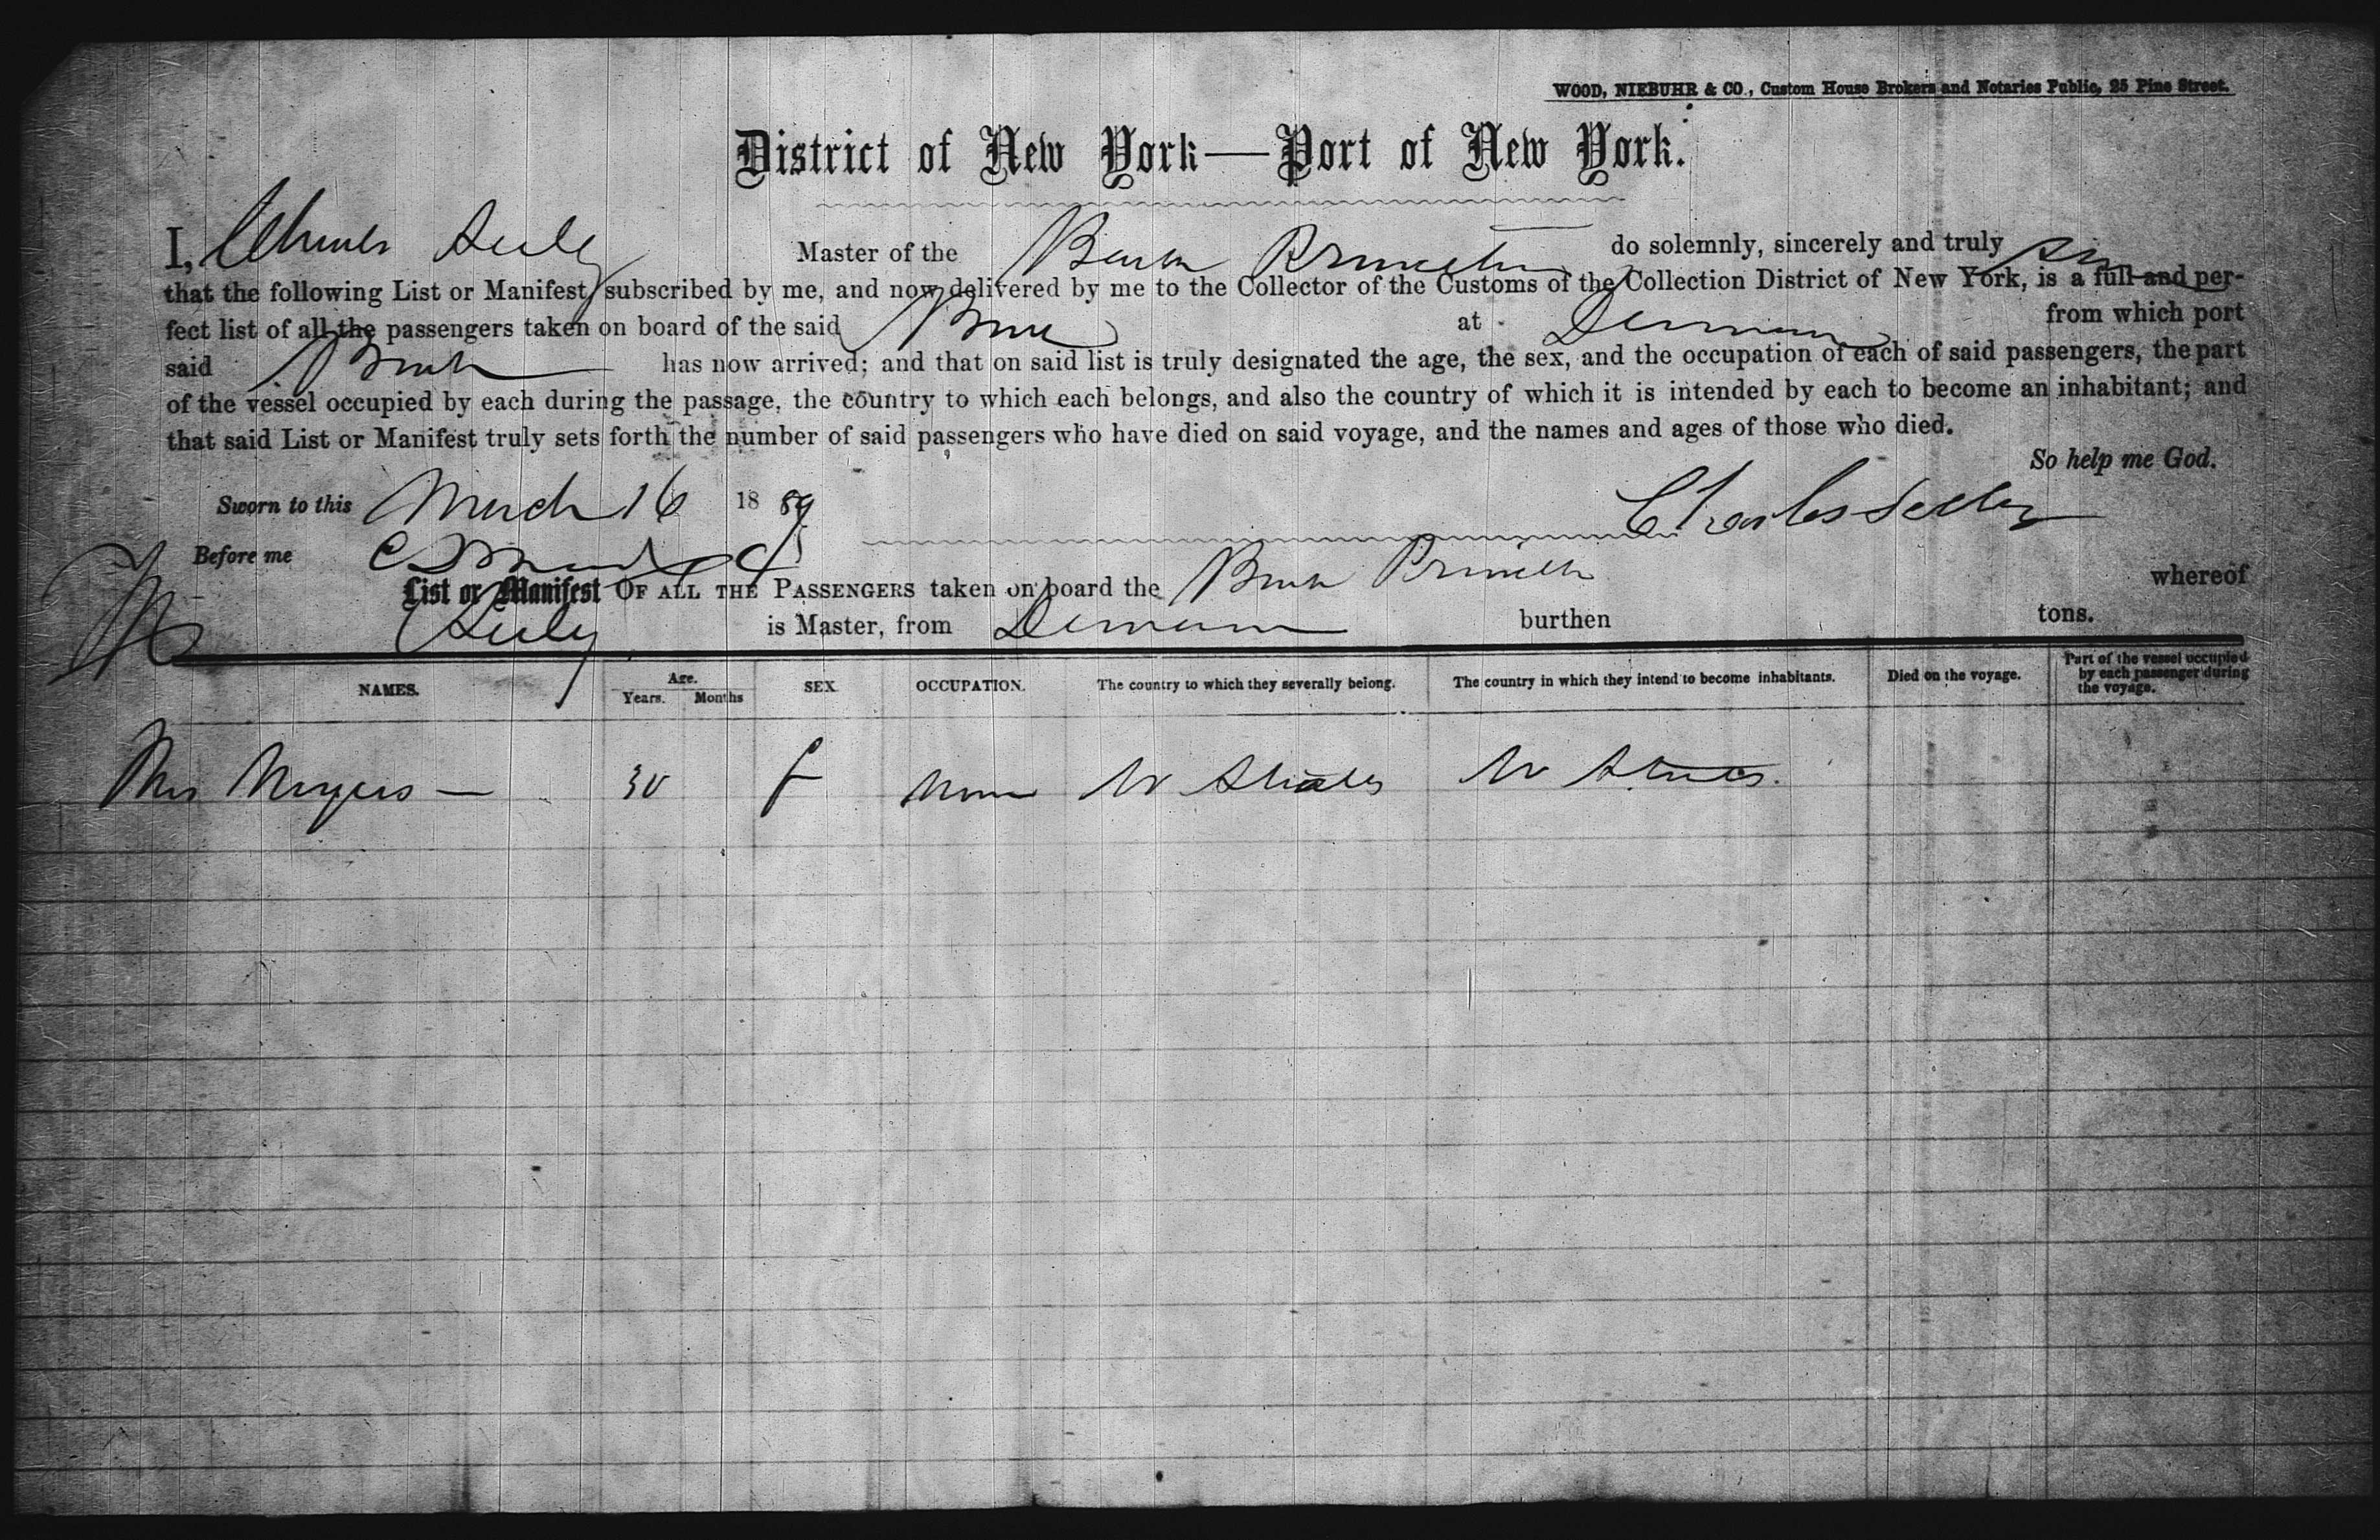 WOOD, NIEBUHR & CO., Custom House Brokers and Notaries Public, 25 Pine Street.
District of New York—Port of New York.
I, Charles Seeley Master of the Bark do solemnly, sincerely and truly
that the following List or Manifest, subscribed by me, and now delivered by me to the Collector of the Customs of the Collection District of New York, is a full and per-
fect list of all the passengers taken on board of the said Bark at Demerara from which port
said Bark has now arrived; and that on said list is truly designated the age, the sex, and the occupation of each of said passengers, the part
of the vessel occupied by each during the passage, the country to which each belongs, and also the country of which it is intended by each to become an inhabitant; and
that said List or Manifest truly sets forth the number of said passengers who have died on said voyage, and the names and ages of those who died.
So help me God.
Sworn to this March 16 1889 Charles Seeley
Before me
List or Manifest OF ALL THE PASSENGERS taken on board the Bark whereof
Seeley is Master, from Demerara burthen tons.
NAMES. Age. Years. Months SEX. OCCUPATION. The country to which they severally belong. The country in which they intend to become inhabitants. Died on the voyage. Part of the vessel occupied by each passenger during the voyage.
Mrs Meyers — 30 f None U States U States.